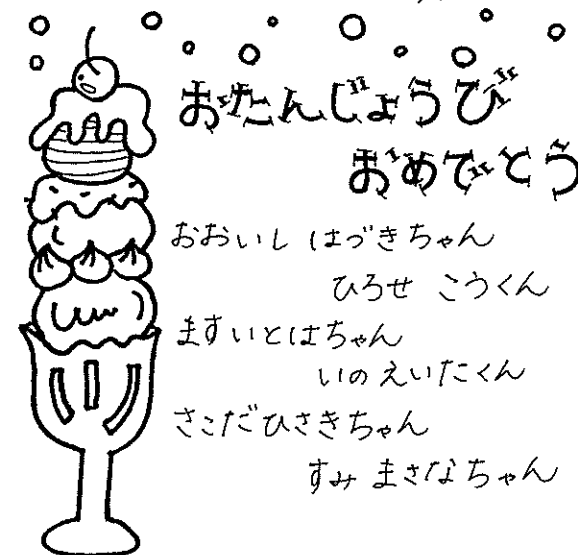 おたんじょうび
おめでとう
おおいし はづきちゃん
ひろせ こうくん
ますいとはちゃん
いの えいたくん
さこだひさきちゃん
すみ まさなちゃん